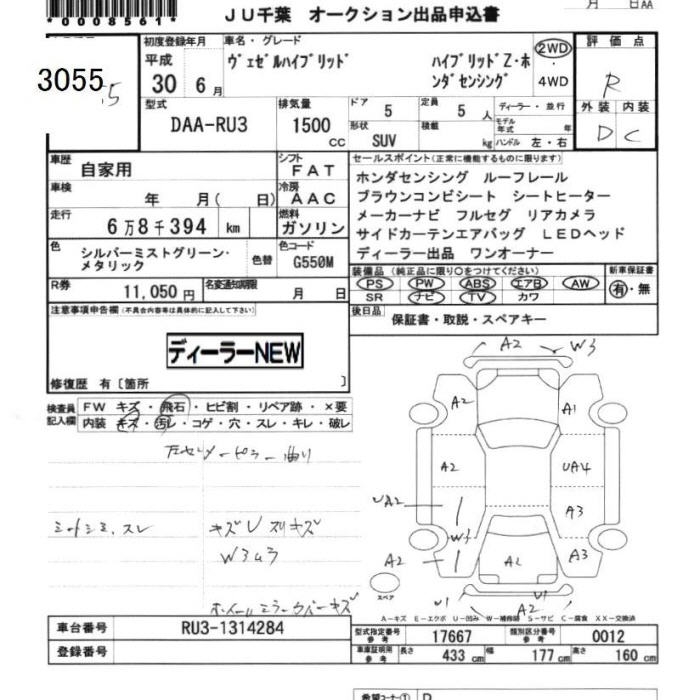 *0008561*
月 日AA
JU千葉 オークション出品申込書
3055
5
初度登録年月
平成
30 6月
車名・グレード
ヴェゼルハイブリッド ハイブリッドZ・ホ
ンダセンシング
2WD
・
4WD
評価点
R
外装 内装
D C
型式
DAA-RU3
排気量
1500
CC
ドア
5
定員
5 人
形状
SUV
積載
kg
ディーラー・並行
モデル
年式 年
ハンドル 左・右
車歴
自家用
シフト
FAT
車検
年 月( 日)
冷房
AAC
走行
6万8千394 km
燃料
ガソリン
色
シルバーミストグリーン・
メタリック
色替
色コード
G550M
R券
11,050円
名変通知期限
月 日
セールスポイント(正常に機能するものに限ります)
ホンダセンシング ルーフレール
ブラウンコンビシート シートヒーター
メーカーナビ フルセグ リアカメラ
サイドカーテンエアバッグ LEDヘッド
ディーラー出品 ワンオーナー
装備品(純正品に限り○をつけてください)
PS PW ABS エアB AW
SR ナビ TV カワ
新車保証書
有・無
後日品
保証書・取説・スペアキー
注意事項申告欄(不具合内容等は具体的に記入して下さい)
ディーラーNEW
修復歴 有〔箇所 〕
検査員
記入欄
FW キズ・飛石・ヒビ割・リペア跡・×要
内装 キズ・汚レ・コゲ・穴・スレ・キレ・破レ
左センターピラー曲り
シートシミ、スレ
キズU スリキズ
W3ムラ
ホイールミラーカバーキズ
A2 W3
A2 A1
A2 UA4
UA2 A3
W3
A2 A2 A3
スペア
U1 A2 U1
A-キズ E-エクボ U-凹み W-補修跡 S-サビ C-腐食 XX-交換済
車台番号
RU3-1314284
登録番号
型式指定番号
参考
17667
類別区分番号
参考
0012
車庫証明用
参考
長さ
433 cm
幅
177 cm
高さ
160 cm
希望コーナー① D